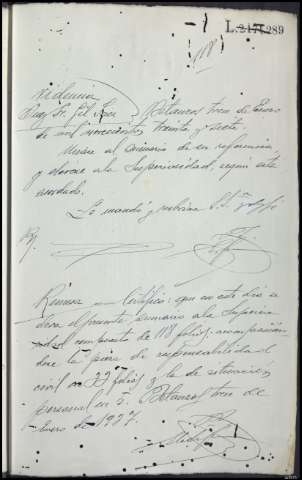 L.2171.289
118
Providencia
Juez Sr. Gil Betanzos tres de Enero
de mil novecientos treinta y siete
Unase al sumario de su referencia,
y elévese a la Superioridad, según esta
acordado.
Lo mandó y rubrica S.S. doy fé
Remesa Certifico: que en este dia se
eleva el presente sumario a la Superio-
ridad compuesto de 118 folios; acompañán-
dose la pieza de responsabilidad
civil en 22 folios y la de situación
personal en 2. Betanzos tres de
Enero de 1937.